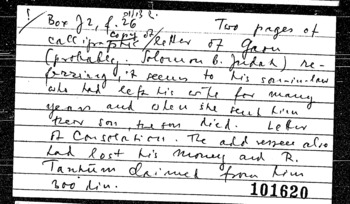 Box J2, f. 26 Two pages of
calligraphic copy of letter of Gaon
(probably Solomon B. Judah) re-
ferring, it seems to his son-in-law
who had left his wife for many
years and when she sent him
their son, the son died. Letter
of Consolation. The addressee also
had lost his money and R.
Tanhum claimed from him
300 din.
101620